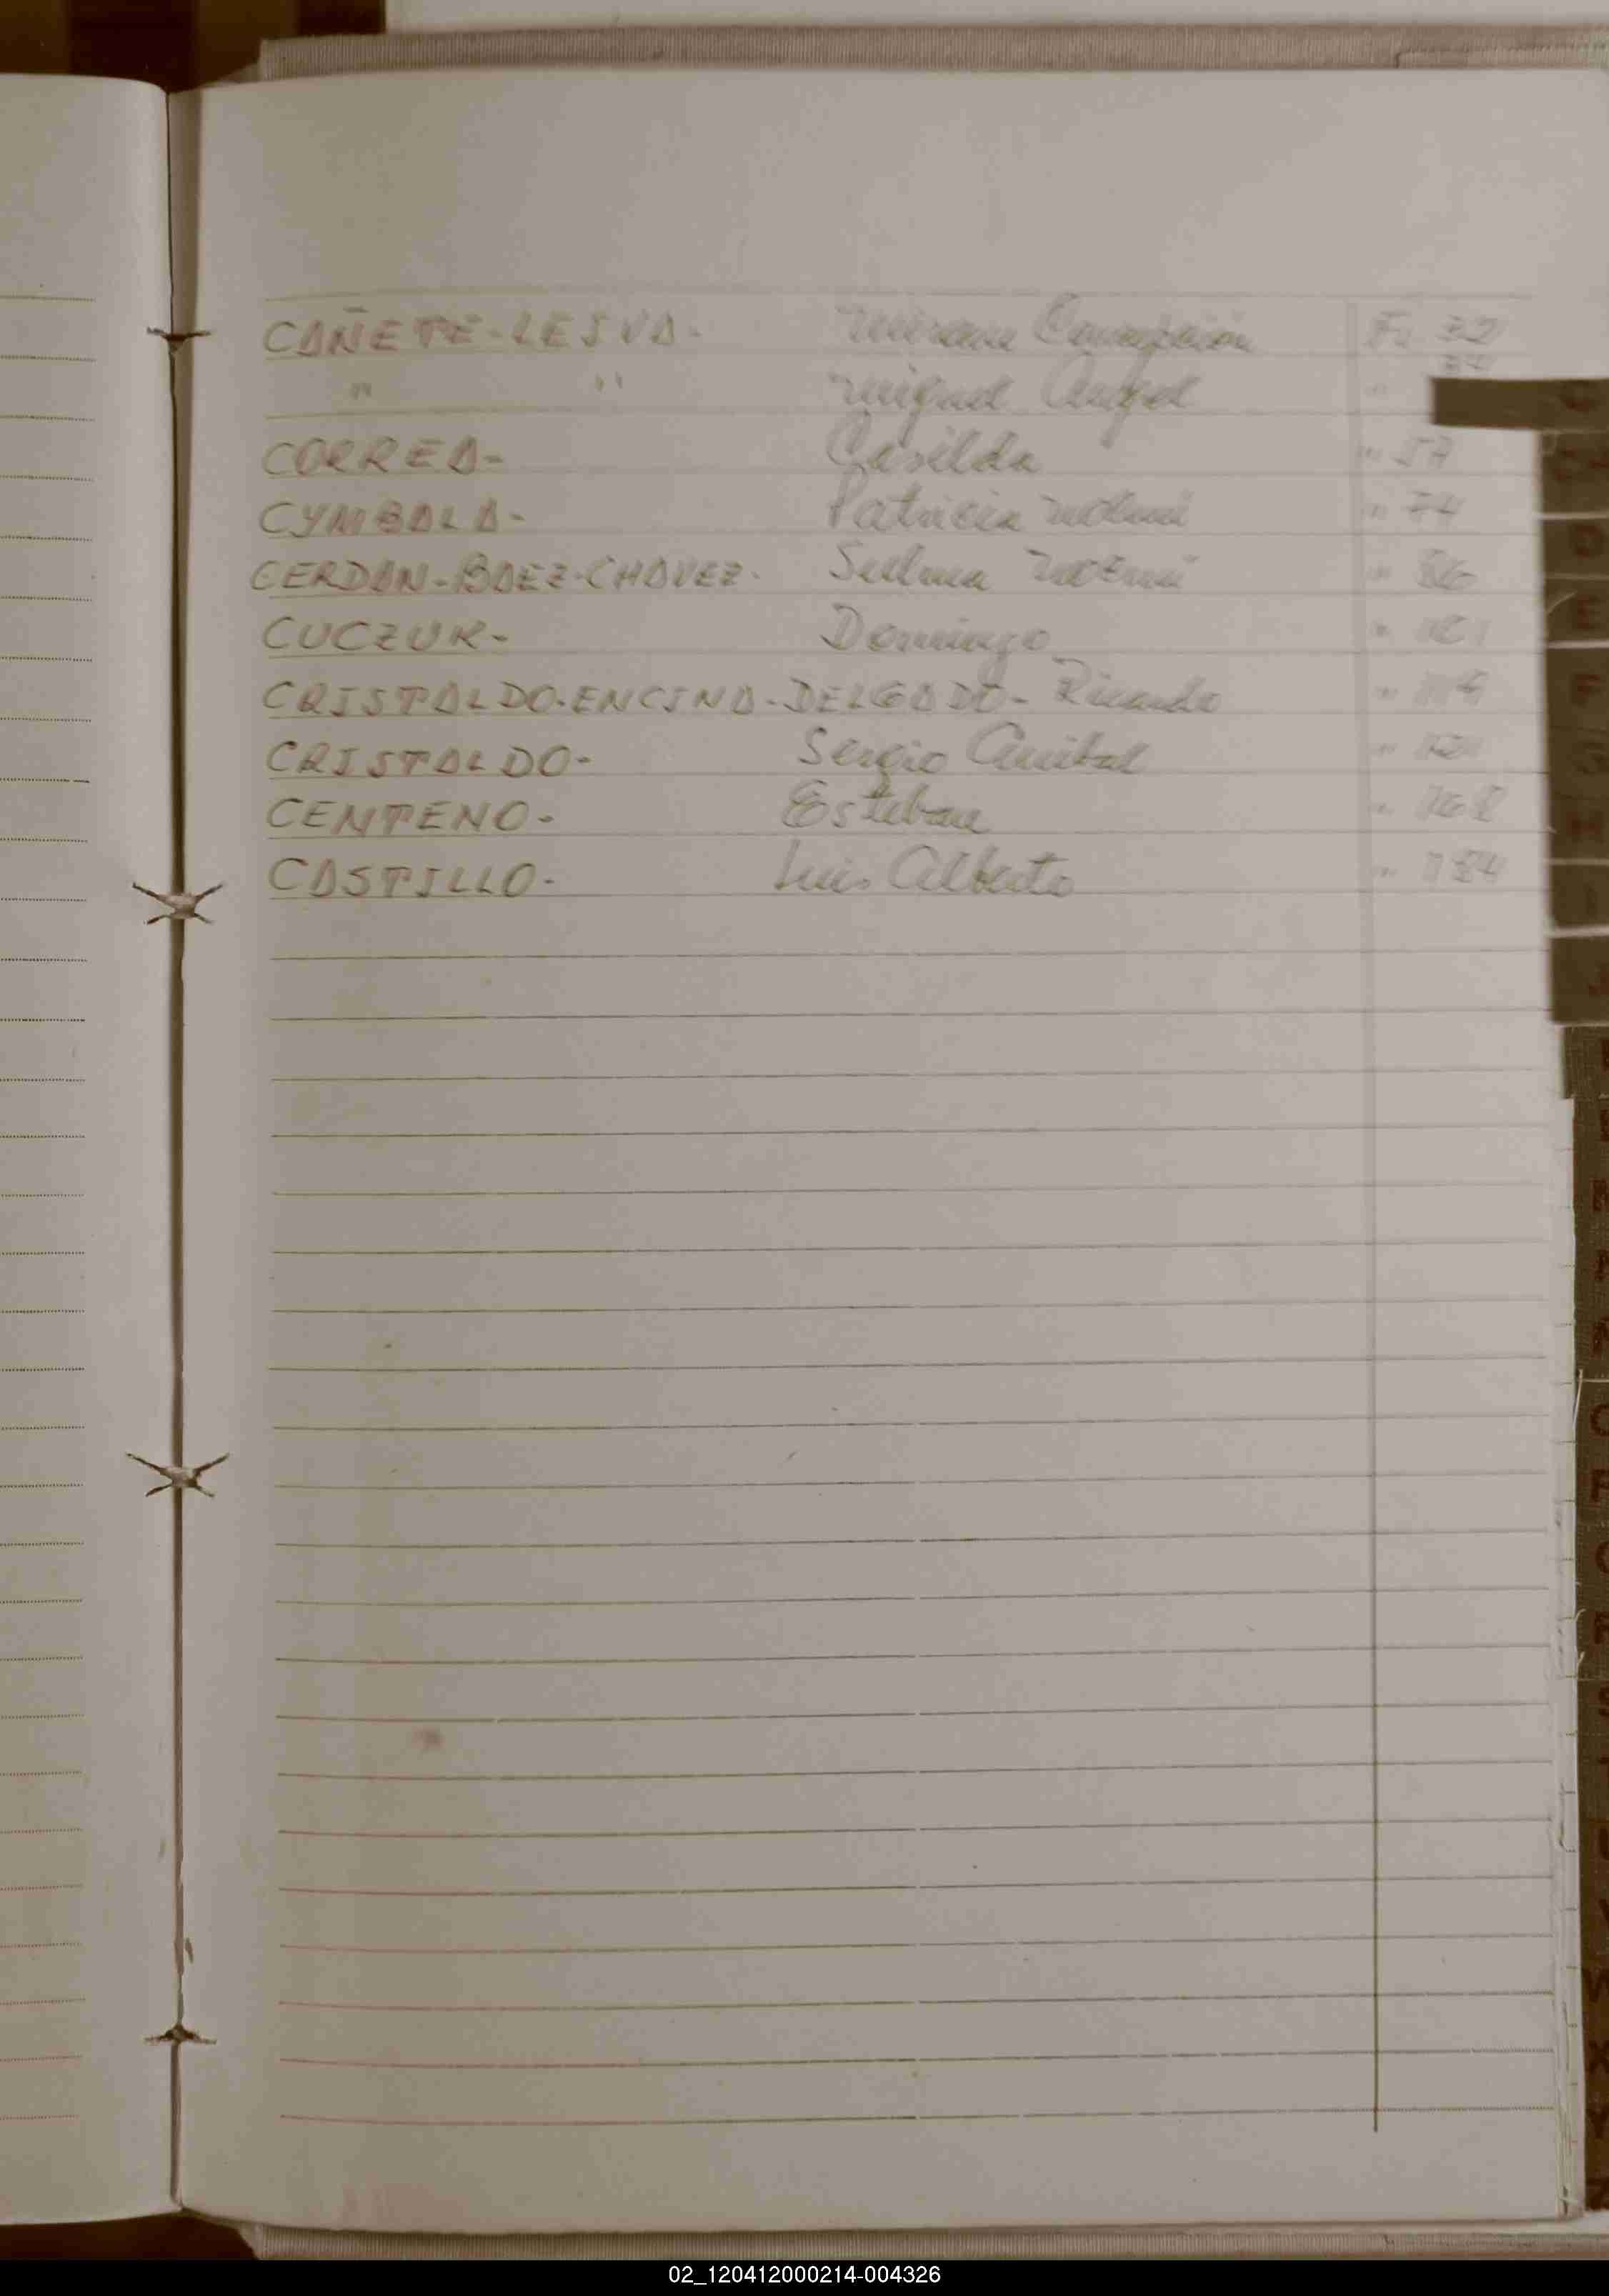 CAÑETE-LESVA- Miriam Concepción Fº 32
" " Miguel Angel " 34
CORREA- Casilda " 57
CYMBALA- Patricia Noemi " 74
CERDAN-BAEZ-CHAVEZ- Sulma Noemi " 86
CUCZUK- Domingo " 101
CRISTALDO-ENCINA-DELGADO- Ricardo "
CRISTALDO- Sergio Anibal "
CENTENO- Esteban " 168
CASTILLO- Luis Alberto " 184
D
E
F
G
H
I
02_120412000214-004326